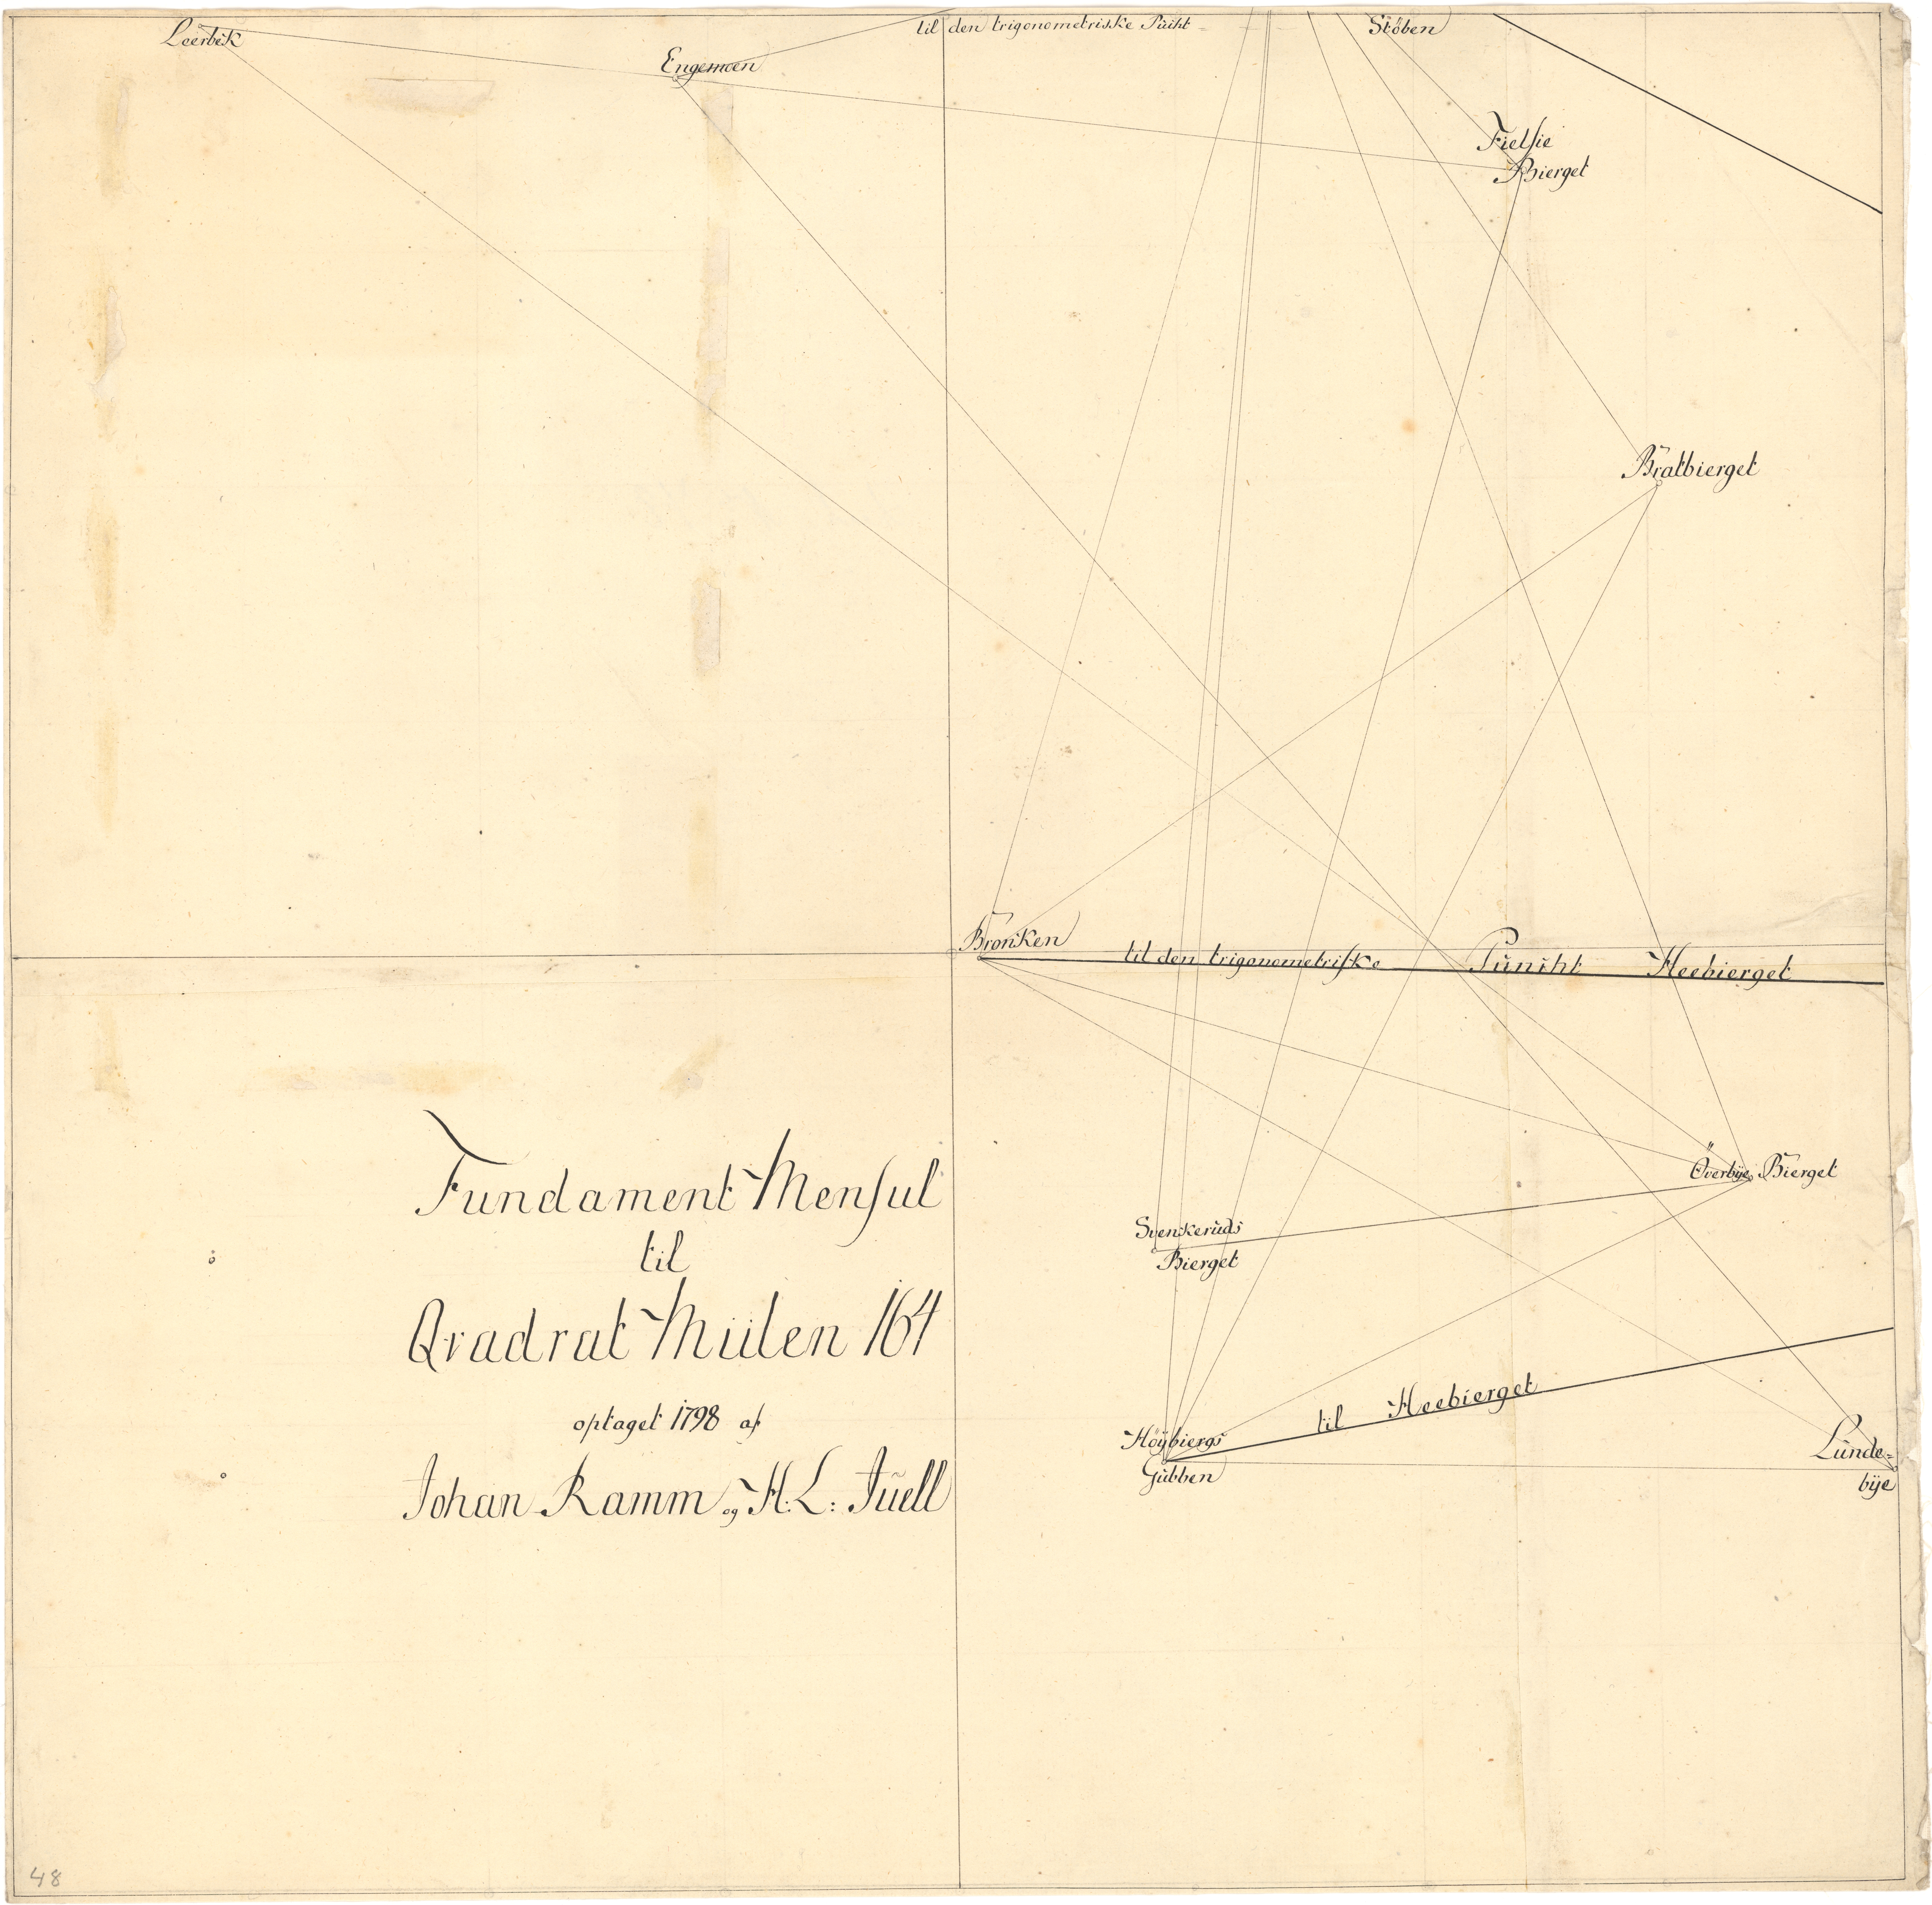 Leerbek
Engemoen
til den trigonometriske Puncht
Stöben
Fielsie
Bierget
Bratbierget
Bronken
til den trigonometriske Puncht Heebierget
Överbÿe Bierget
Svenkeruds
Bierget
til Heebierget
Höÿbiergs
Gubben
Lunde-
bÿe
Fundament Mensul
til
Qvadrat Miilen 164
optaget 1798 af
Johan Ramm og H. L: Juell
48